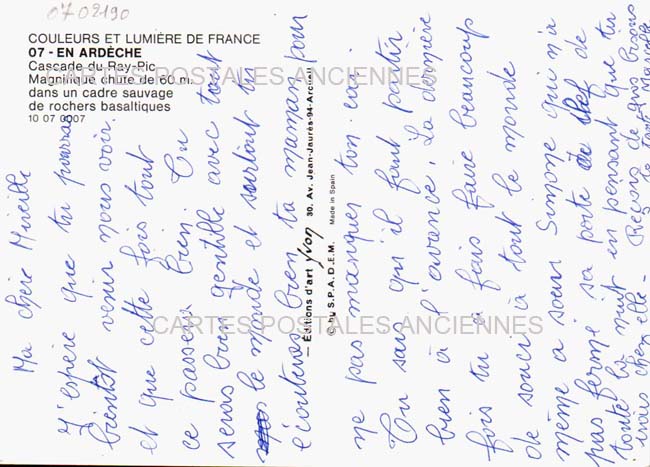 0702190
COULEURS ET LUMIÈRE DE FRANCE
07 - EN ARDÈCHE
Cascade du Ray-Pic
Magnifique chute de 60 m.
dans un cadre sauvage
de rochers basaltiques
10 07 0007
CARTES POSTALES ANCIENNES
CARTES POSTALES ANCIENNES
— Éditions d'art yvon 30, Av. Jean-Jaurès-94-Arcueil
© by S.P.A.D.E.M. Made in Spain
Ma chère Mireille
J'espère que tu pourras
bientôt venir nous voir.
et que cette fois tout
ce passera bien. Tu
seras bien gentille avec tout
le monde et surtout tu
écouteras bien ta maman pour
ne pas manquer ton car.
Tu sais qu'il faut partir
bien à l'avance. La dernière
fois tu a fais faire beaucoup
de souci à tout le monde
même a sœur Simone qui n'a
pas fermé sa porte de
toute la nuit en pensant que tu
irais chez elle -
Reçois de gros bisous
de Tante Marcelle